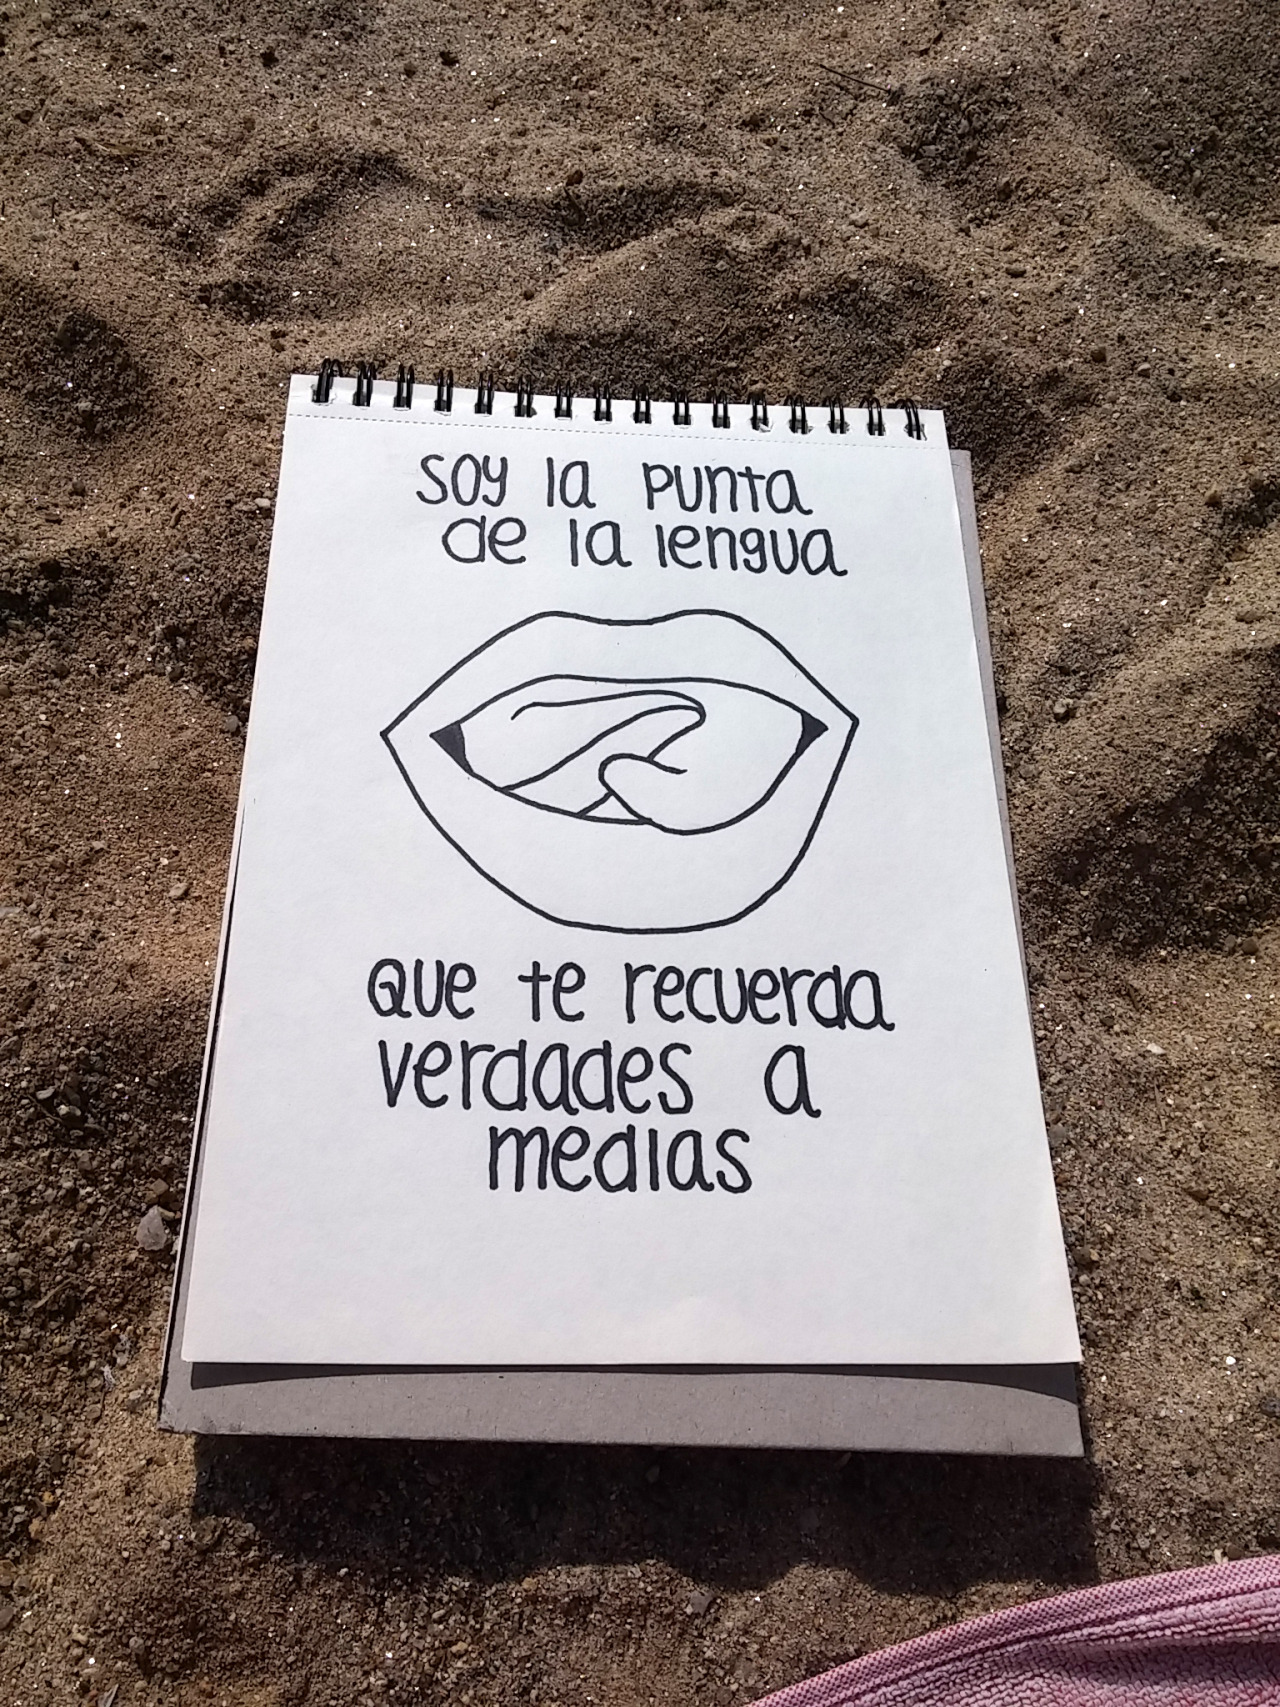 soy la punta
de la lengua
Que te recuerda
verdades a
medias